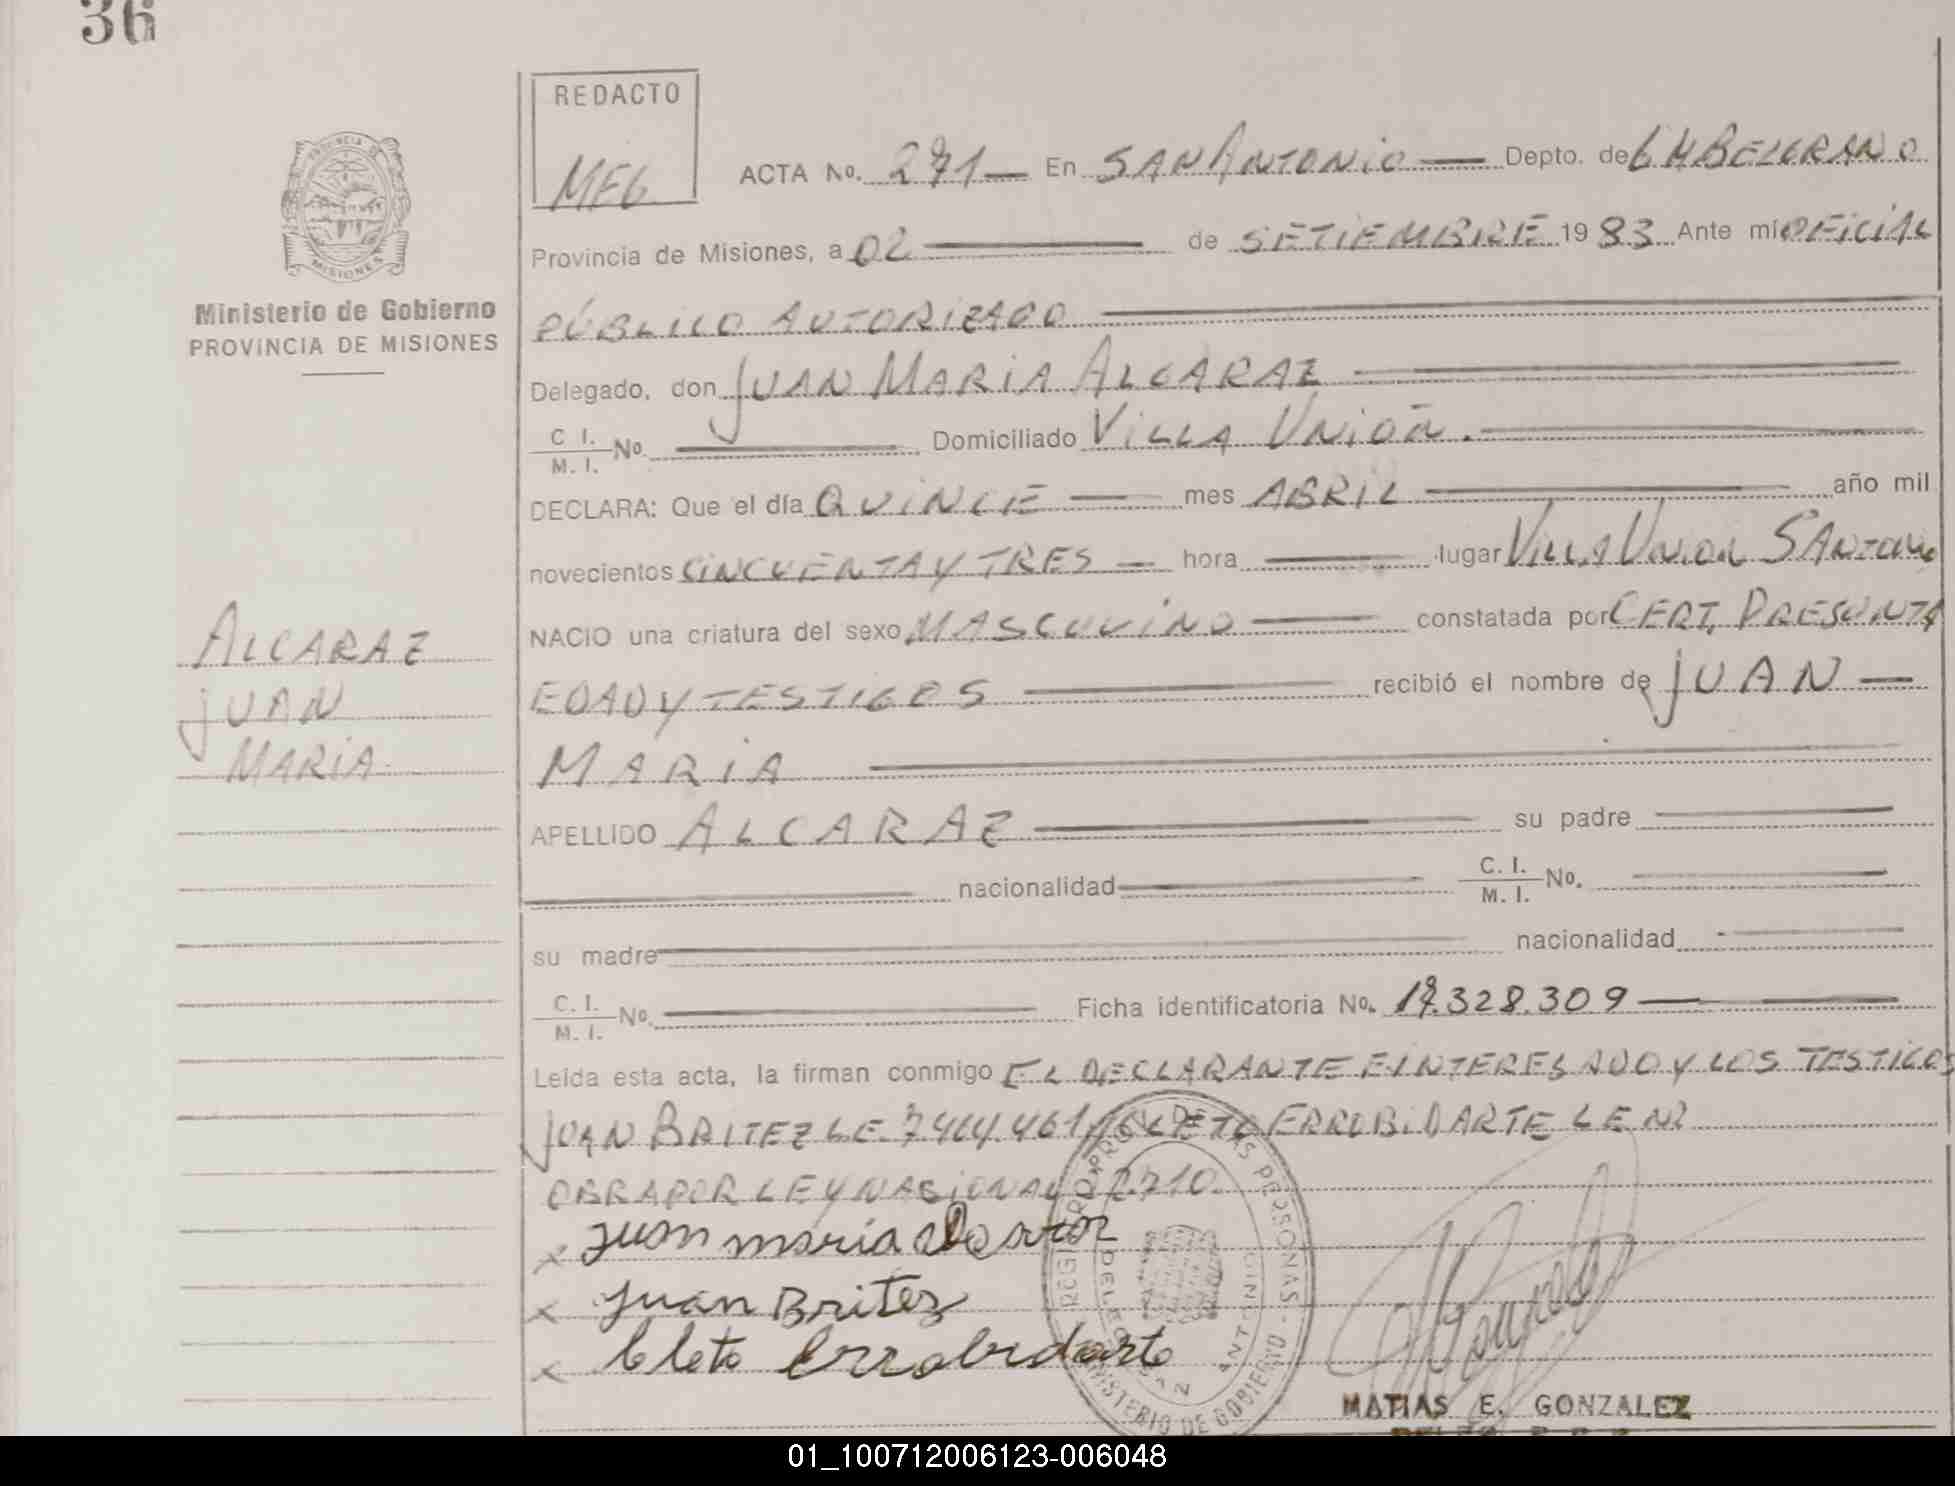 36
REDACTO
MEG
PROVINCIA DE
MISIONES
Ministerio de Gobierno
PROVINCIA DE MISIONES
ACTA No. 271 En SAN ANTONIO Depto. de G M BELGRANO
Provincia de Misiones, a 02 de SETIEMBRE 1983 Ante mí OFICIAL
PÚBLICO AUTORIZADO
Delegado, don JUAN MARIA ALCARAZ
C I. / M. I. No. Domiciliado VILLA UNIÓN.
DECLARA: Que el día QUINCE mes ABRIL año mil
novecientos CINCUENTA Y TRES hora lugar VILLA UNION SANTONIO
NACIO una criatura del sexo MASCULINO constatada por CERT. PRESUNTA
EDAD Y TESTIGOS recibió el nombre de JUAN
MARIA
APELLIDO ALCARAZ su padre
nacionalidad C. I. / M. I. No.
su madre nacionalidad
C. I. / M. I. No. Ficha identificatoria No. .328.309
Leída esta acta, la firman conmigo EL DECLARANTE E INTERESADO Y LOS TESTIGOS
JUAN BRITEZ L E. 7.464.461 CLETO ERROBIDARTE L E Nº
OBRA POR LEY NACIONAL
ALCARAZ
JUAN
MARIA
x Juan maria alcaraz
x Juan Britez
x Cleto Errobidarte
REGISTRO PROV. DE LAS PERSONAS
MINISTERIO DE GOBIERNO
SAN ANTONIO
MATIAS E. GONZALEZ
01_100712006123-006048